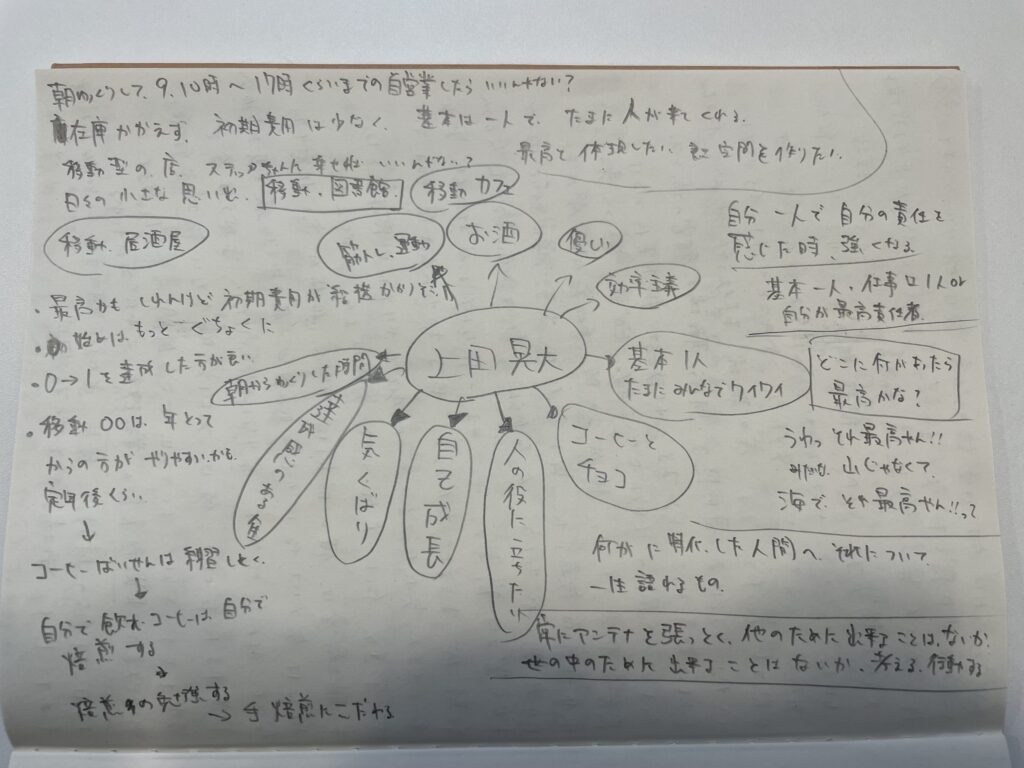 朝ゆっくりして、9、10時〜17時くらいまでの自営業したらいいんやない?
在庫かかえず、初期費用は少なく、基本は一人で、たまに人が来てくれる。
移動型の店、スタッフちゃんと幸せならいいんやない?
最高で体現したい 空間を作りたい。
日々の小さな思いを、
移動、図書館
移動カフェ
移動、居酒屋
筋トレ、運動
お酒
優しい
効率主義
自分一人で自分の責任を
感じた時、強くなる
基本一人、仕事は1人or
自分が最高責任者
・最高かもしれんけど初期費用が
・始めはもっとぐちょくに
・0→1を達成した方が良い
・移動〇〇は、年とって
からの方がやりやすいかも
定年後くらい
↓
コーヒーばいせんは練習しとく。
↓
自分で飲むコーヒーは、自分で
焙煎する
↓
焙煎の勉強する
→手焙煎にこだわる
上田晃大
朝からゆっくりした時間
気くばり
自己成長
人の役に立ちたい
コーヒーと
チョコ
基本1人
たまにみんなでワイワイ
どこに何があったら
最高かな?
うわっ それ最高やん!!
みたいな 山じゃなくて
海で、とか最高やん!!って
何かに特化した人間へ それについて
一生語れるもの
常にアンテナを張っとく、他のために出来ることはないか
世の中のために出来ることはないか、考える、行動する